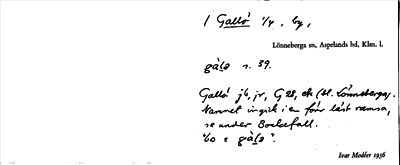 1 Gallö 1/4, by,
Lönneberga sn, Aspelands hd, Klm. l.
gàlə s. 39.
Gallö jb, jr, G 28, ek (bl. Lönneberga).
Namnet ingick i en förr läst ramsa,
se under Boelsefall.
"bo i gàlə".
Ivar Modéer 1936